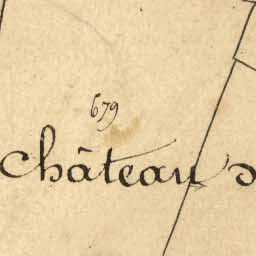 679
Château